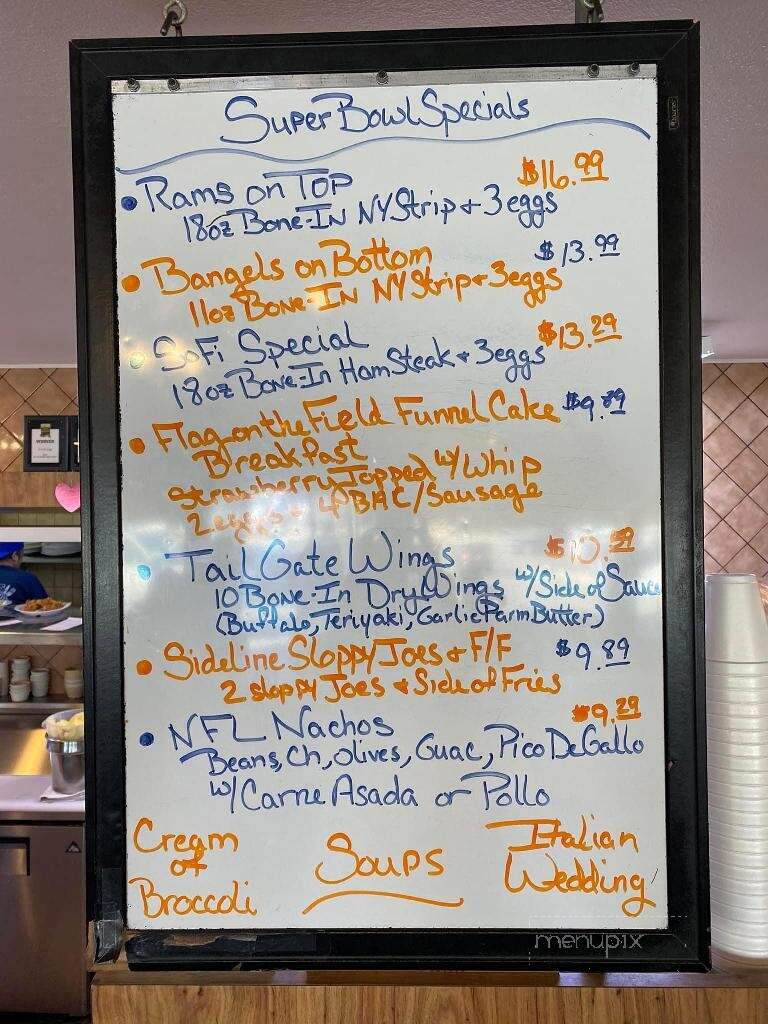 Super Bowl Specials
• Rams on TOP $16.99
18oz Bone-In NY Strip + 3 eggs
• Bangels on Bottom $13.99
11oz Bone-In NY Strip + 3 eggs
• SoFi Special $13.29
18oz Bone-In Ham Steak + 3 eggs
• Flag on the Field Funnel Cake $9.89
Breakfast
Strawberry Topped w/ Whip
2 eggs + 4 BAC/Sausage
• TailGate Wings $10.99
10 Bone-In Dry Wings w/ Side of Sauce
(Buffalo, Teriyaki, Garlic Parm Butter)
• Sideline Sloppy Joes + F/F $9.89
2 sloppy Joes + Side of Fries
• NFL Nachos $9.29
Beans, Ch, Olives, Guac, Pico De Gallo
w/ Carne Asada or Pollo
Cream of Broccoli
Soups
Italian Wedding
menupix